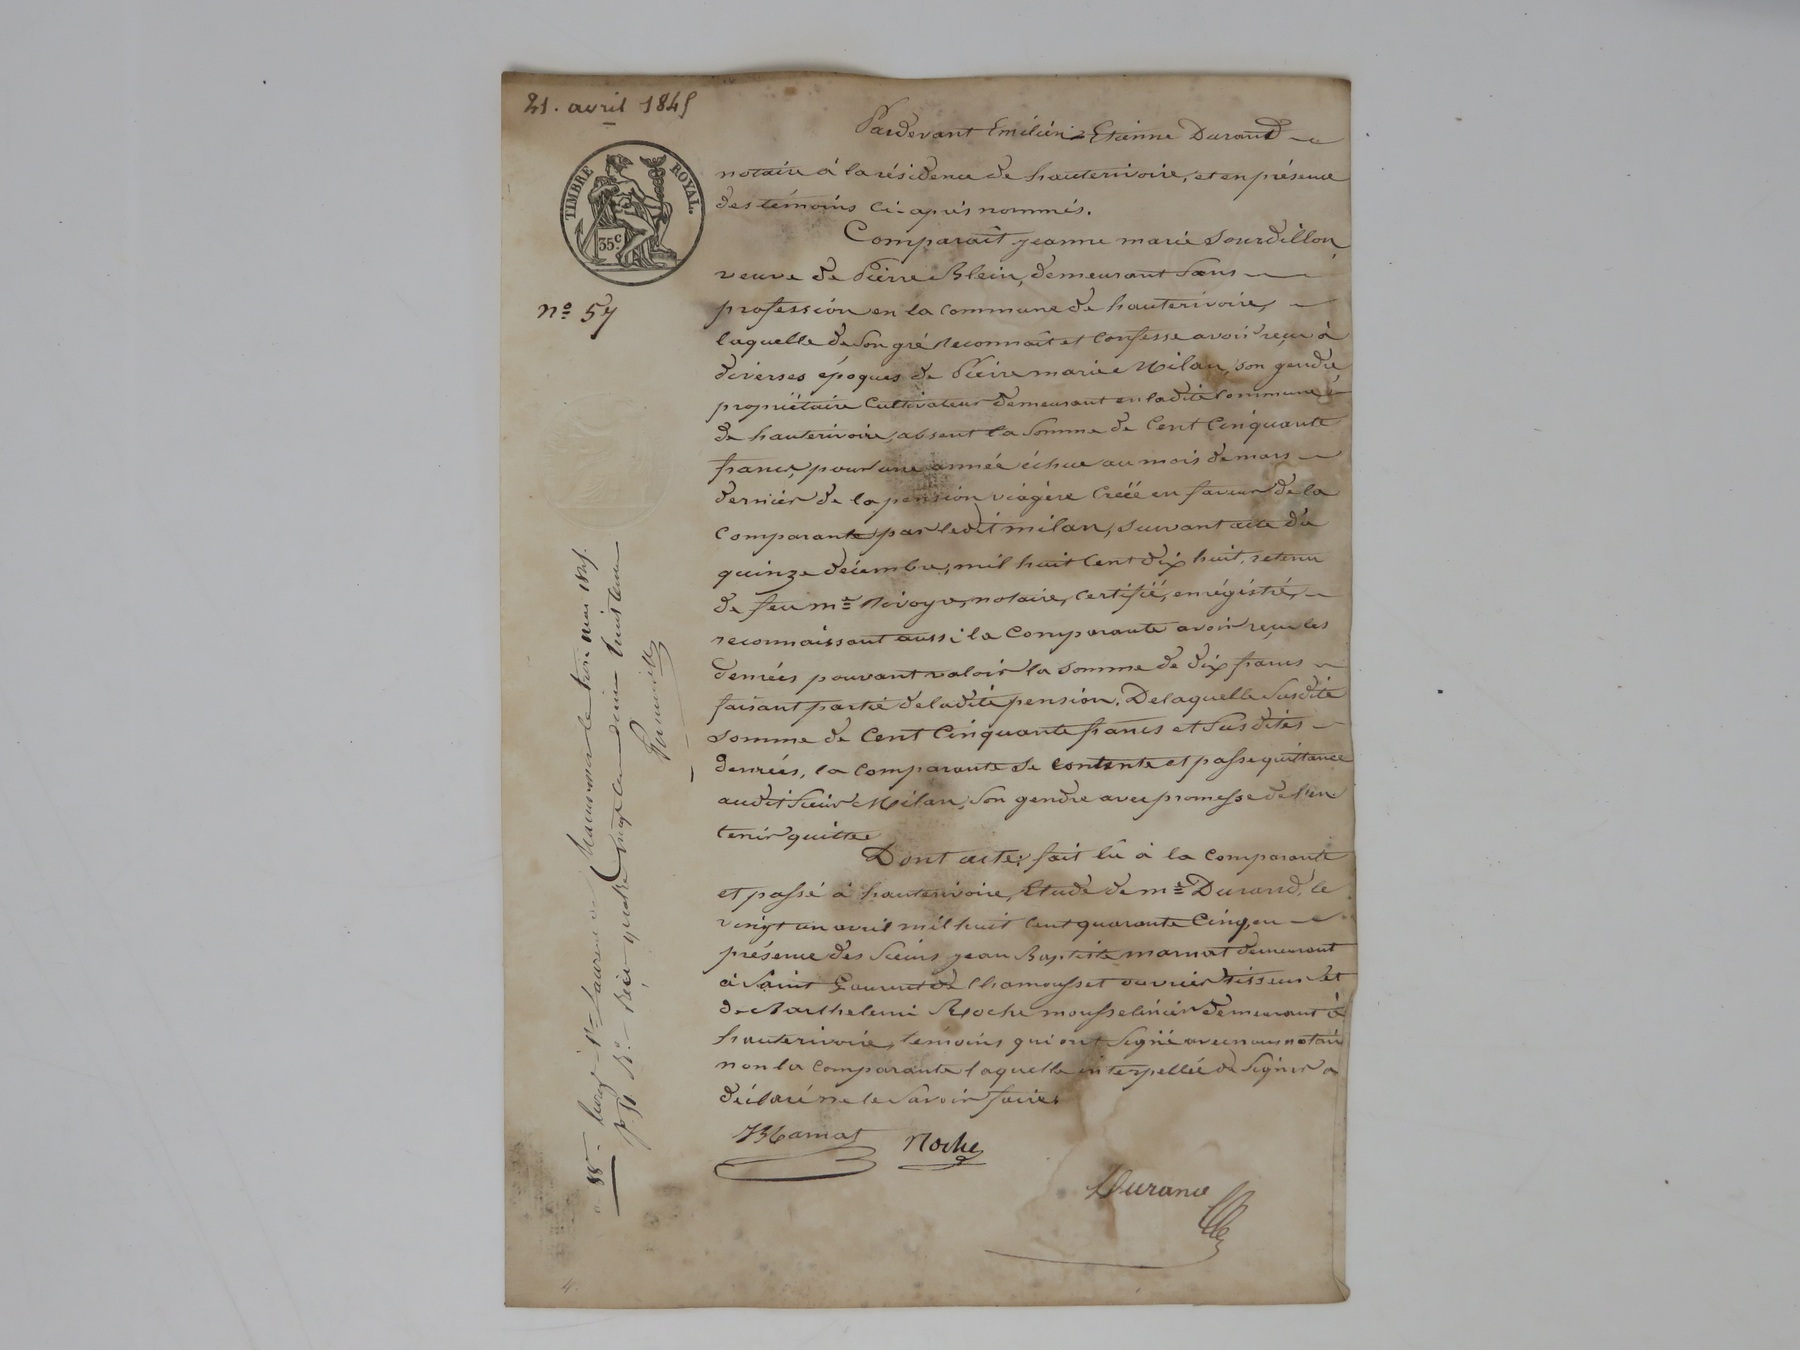 21. avril 1845
TIMBRE ROYAL.
35c.
nº 57
Pardevant Emilien Etienne Durand
notaire à la résidence de hauterivoire, et en présence
des témoins ci-après nommés.
Comparait jeanne marie Sourdillon
veuve de Pierre Blein, demeurant sans
profession en la commune de hauterivoire,
laquelle de son gré reconnait et confesse avoir reçu à
diverses époques de Pierre marie Milan, son gendre,
propriétaire cultivateur demeurant en ladite commune
de hauterivoire, absent la somme de cent cinquante
francs, pour une année échue au mois de mars
dernier de la pension viagère créée en faveur de la
comparante par ledit milan, suivant acte du
quinze décembre, mil huit cent dix huit, retenu
de feu me notaire, certifié, enrégistré,
reconnaissant aussi la comparante avoir reçu les
denrées pouvant valoir la somme de dix francs
faisant partie de ladite pension. De laquelle susdite
somme de cent cinquante francs et susdites
denrées, la comparante se contente et passe quittance
audit sieur Milan, son gendre avec promesse de l'en
tenir quitte
Dont acte, fait lu à la comparante
et passé à hauterivoire, Etude de me Durand, le
vingt un avril mil huit cent quarante cinq, en
présence des sieurs jean Baptiste marnat demeurant
à Saint Laurent de Chamousset ouvrier tisseur et
de Barthelemi Roche mousselinier demeurant à
hauterivoire, témoins qui ont signé avec nous notaire
non la comparante laquelle interpellée de signer a
déclaré ne le savoir faire.
Roche
Durand
St Laurent de Chamousset le trois mai 1845.
4.